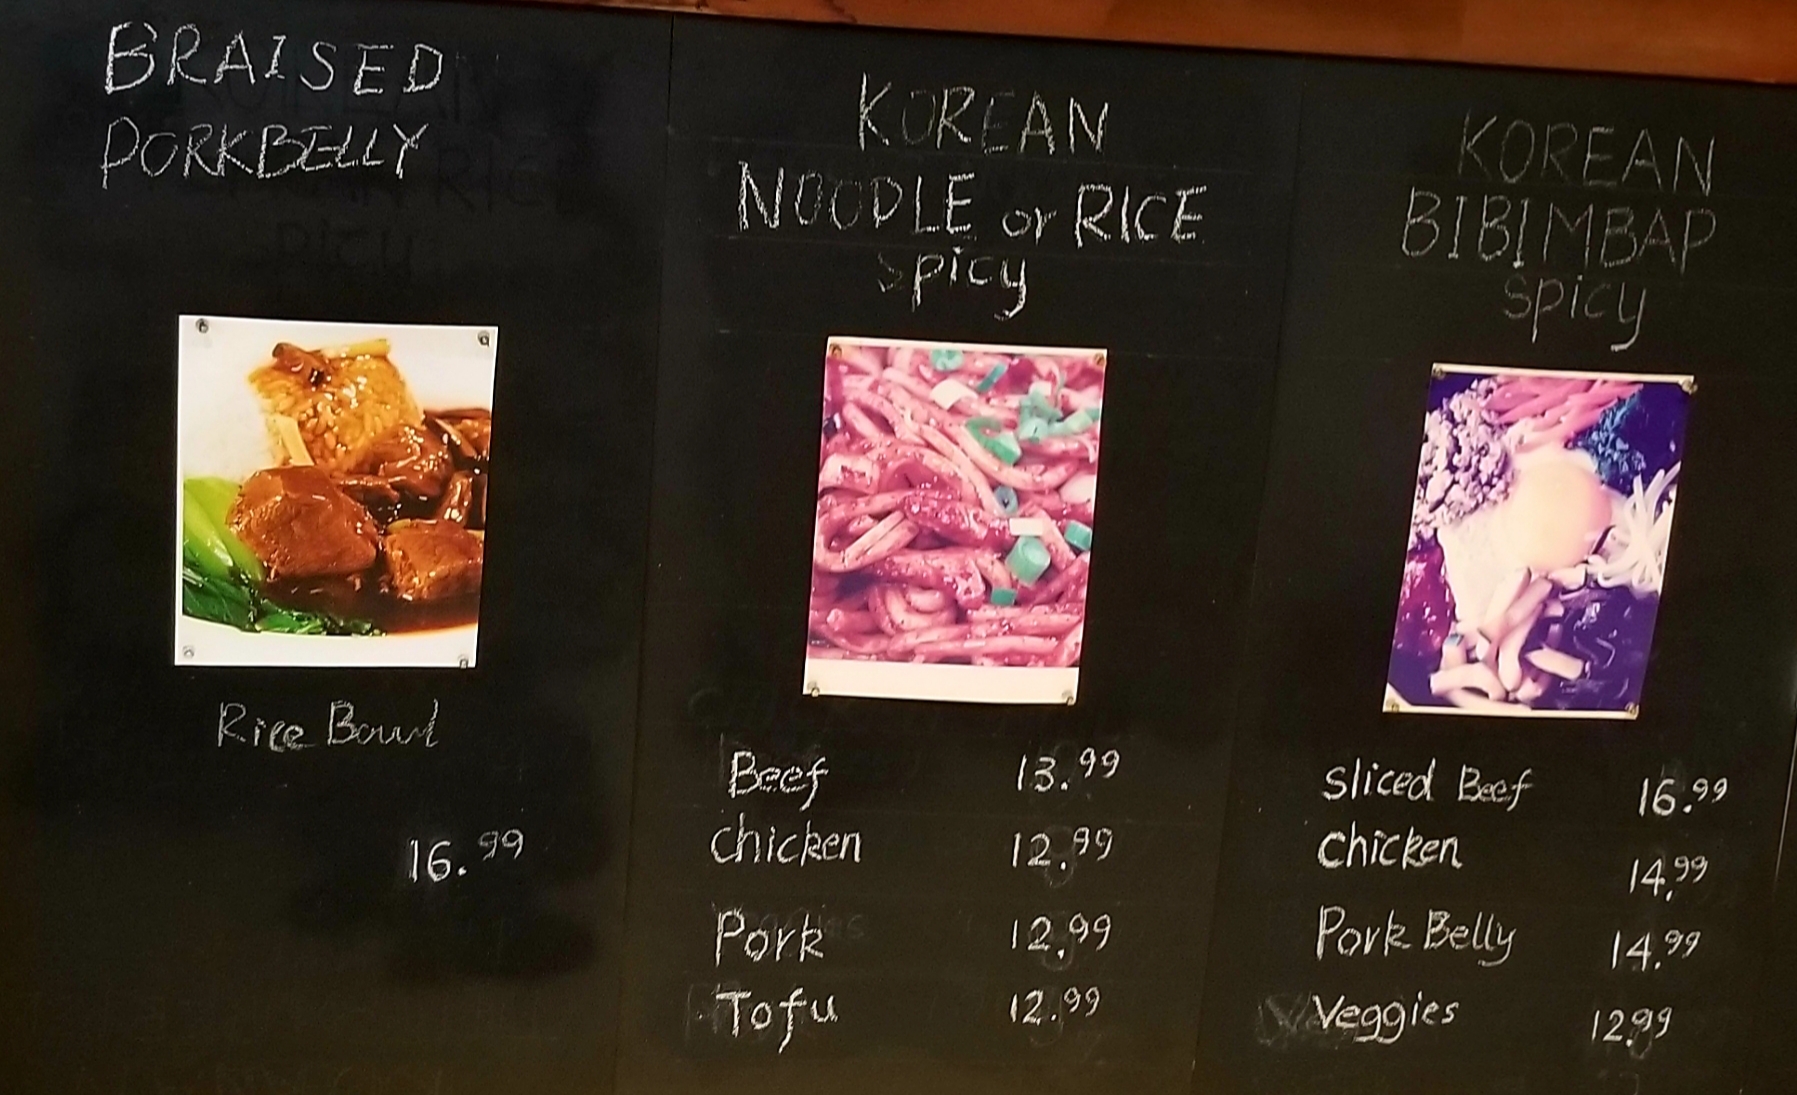 BRAISED
PORKBELLY
Rice Bowl
16.99
KOREAN
NOODLE or RICE
spicy
Beef 13.99
chicken 12.99
Pork 12.99
Tofu 12.99
KOREAN
BIBIMBAP
spicy
sliced Beef 16.99
chicken 14.99
Pork Belly 14.99
Veggies 12.99